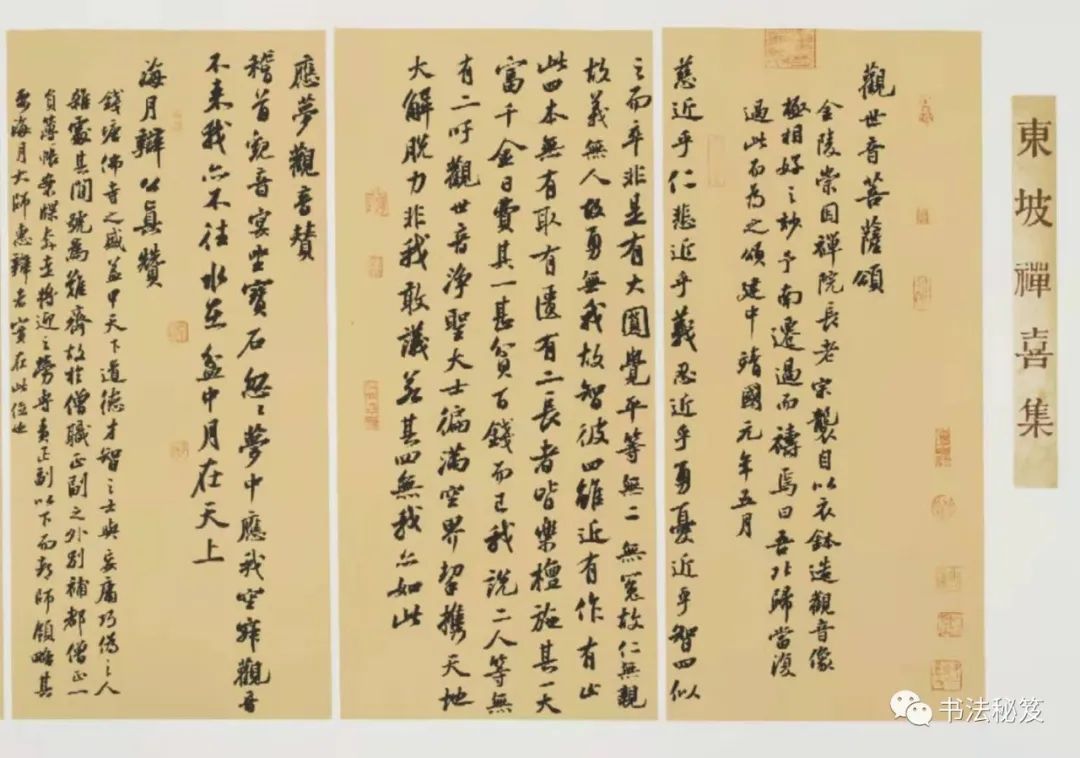 東坡禪喜集
觀世音菩薩頌
金陵崇因禪院長老宗襲自以衣鉢造觀音像
極相好之妙予南遷過而禱焉曰吾北歸當復
過此而為之頌建中靖國元年五月
慈近乎仁悲近乎義忍近乎勇憂近乎智四似
之而卒非是有大圓覺平等無二無冤故仁無親
故義無人故勇無我故智彼四雖近有作有止
此四本無有取有匱有二長者皆樂檀施其一大
富千金日費其一甚貧百錢而已我說二人等無
有二吁觀世音淨聖大士徧滿空界挈攜天地
大解脫力非我敢議若其四無我亦如此
應夢觀音贊
稽首觀音宴坐寶石忽〻夢中應我空寂觀音
不來我亦不往水在盆中月在天上
海月辯公真贊
錢塘佛寺之盛蓋甲天下道德才智之士與妄庸巧偽之人
雜處其間號為難齊故於僧職正副之外別補都僧正一
員簿帳案牒奔走將迎之勞專責正副以下而都師領略其
要海月大師惠辯老實在此位也
书法秘笈